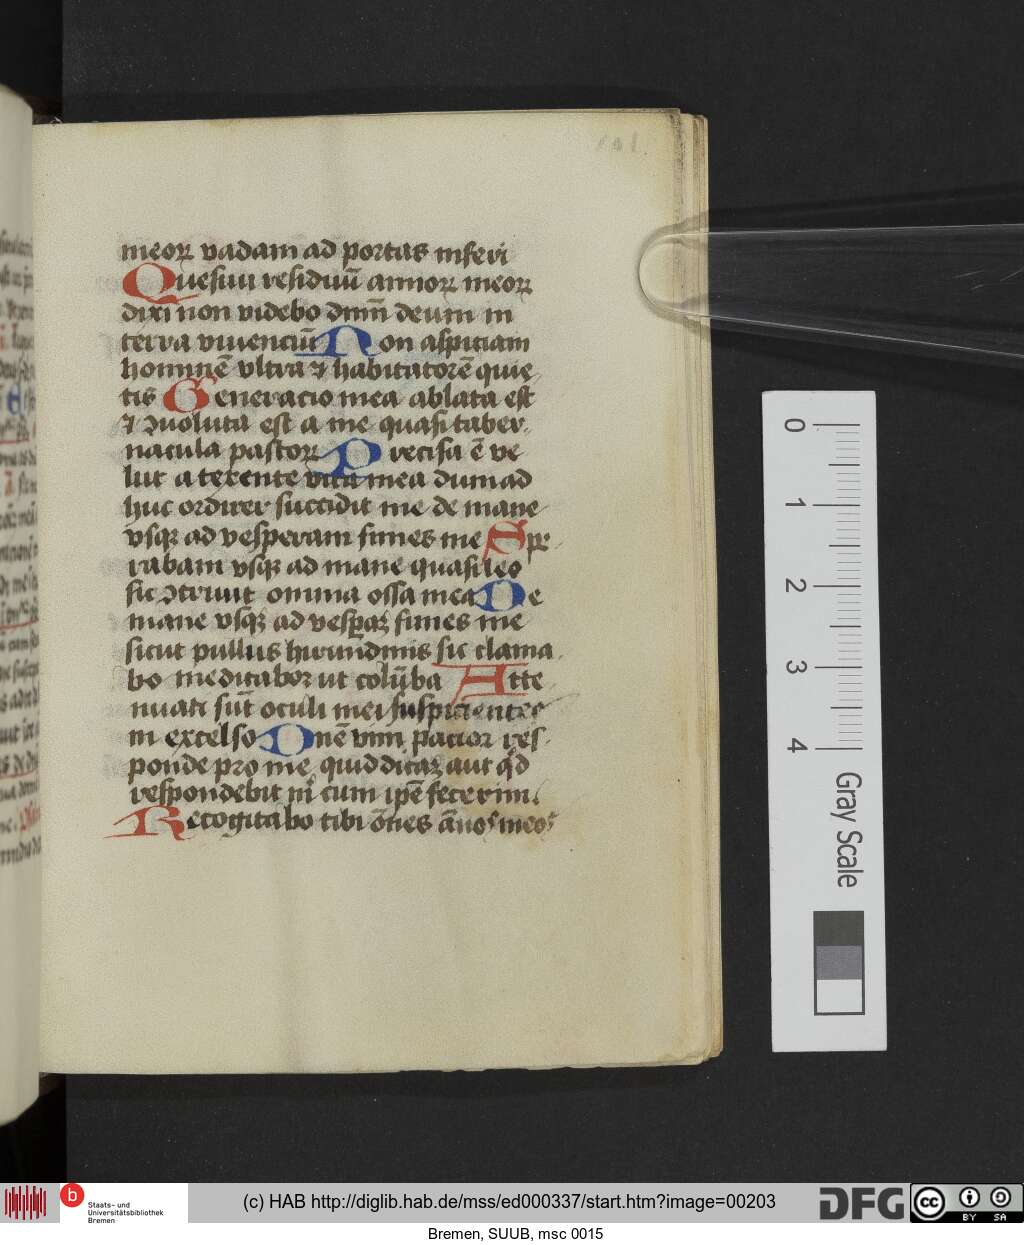 meoꝝ vadam ad portas inferi
Quesiui residuū annoꝝ meoꝝ
dixi non videbo dnm̄ deum in
terra viuenciū Non aspiciam
hominē vltra ⁊ habitatorē quie
tis Generacio mea ablata est
⁊ ꝯuoluta est a me quasi taber
nacula pastoꝝ Precisa ē ve
lut a texente vita mea dum ad
huc ordirer succidit me de mane
vsqꝫ ad vesperam finies me Spe
rabam vsqꝫ ad mane quasi leo
sic ꝯtriuit omnia ossa mea De
mane vsqꝫ ad vesꝑaꝫ finies me
sicut pullus hirundinis sic clama
bo meditabor ut colūba Atte
nuati sūt oculi mei suspicientes
in excelso Dn̄e vim pacior res
ponde pro me quid dicaꝫ aut qd̓
respondebit m̄ cum ip̄e fecerim
Recogitabo tibi ōnes ān̄os meos
0
1
2
3
4
Gray Scale
b
Staats- und
Universitätsbibliothek
Bremen
(c) HAB http://diglib.hab.de/mss/ed000337/start.htm?image=00203
DFG
cc
BY SA
Bremen, SUUB, msc 0015